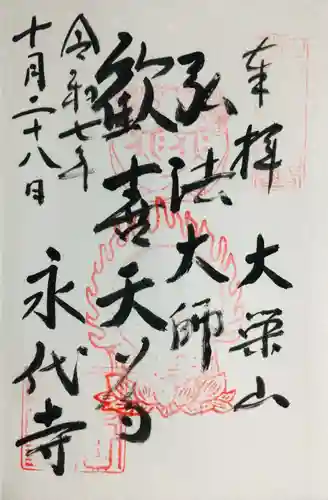 奉拝
大栄山
弘法大師
歓喜天尊
令和七年
十月二十八日
永代寺